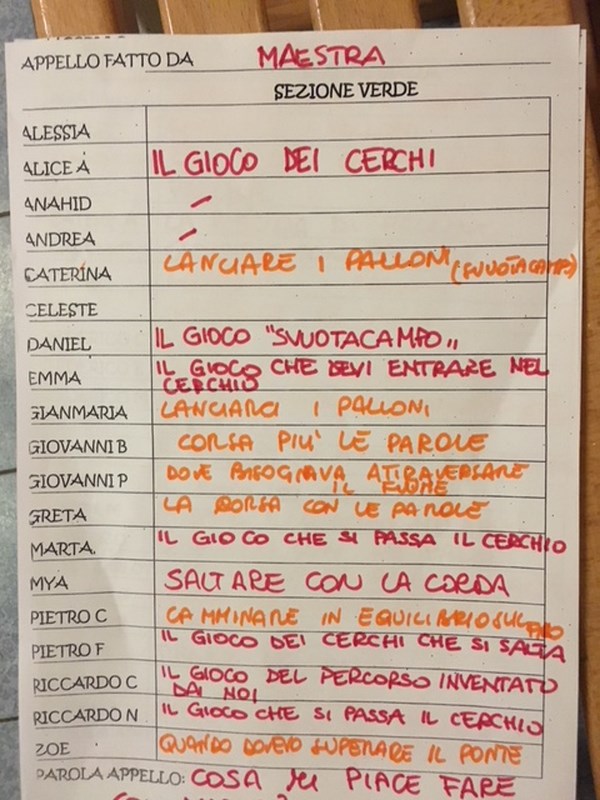 APPELLO FATTO DA MAESTRA
SEZIONE VERDE
ALESSIA
ALICE A IL GIOCO DEI CERCHI
ANAHID –
ANDREA –
CATERINA LANCIARE I PALLONI (SVUOTACAMPO)
CELESTE
DANIEL IL GIOCO "SVUOTACAMPO"
EMMA IL GIOCO CHE DEVI ENTRARE NEL
CERCHIO
GIANMARIA LANCIARCI I PALLONI
GIOVANNI B CORSA PIU' LE PAROLE
GIOVANNI P DOVE BISOGNAVA ATTRAVERSARE
IL FIUME
GRETA LA CORSA CON LE PAROLE
MARTA. IL GIOCO CHE SI PASSA IL CERCHIO
MYA SALTARE CON LA CORDA
PIETRO C CAMMINARE IN EQUILIBRIO SUL
PIETRO F IL GIOCO DEI CERCHI CHE SI SALTA
RICCARDO C IL GIOCO DEL PERCORSO INVENTATO
DAI NOI
RICCARDO N IL GIOCO CHE SI PASSA IL CERCHIO
ZOE QUANDO DOVEVO SUPERARE IL PONTE
PAROLA APPELLO: COSA MI PIACE FARE